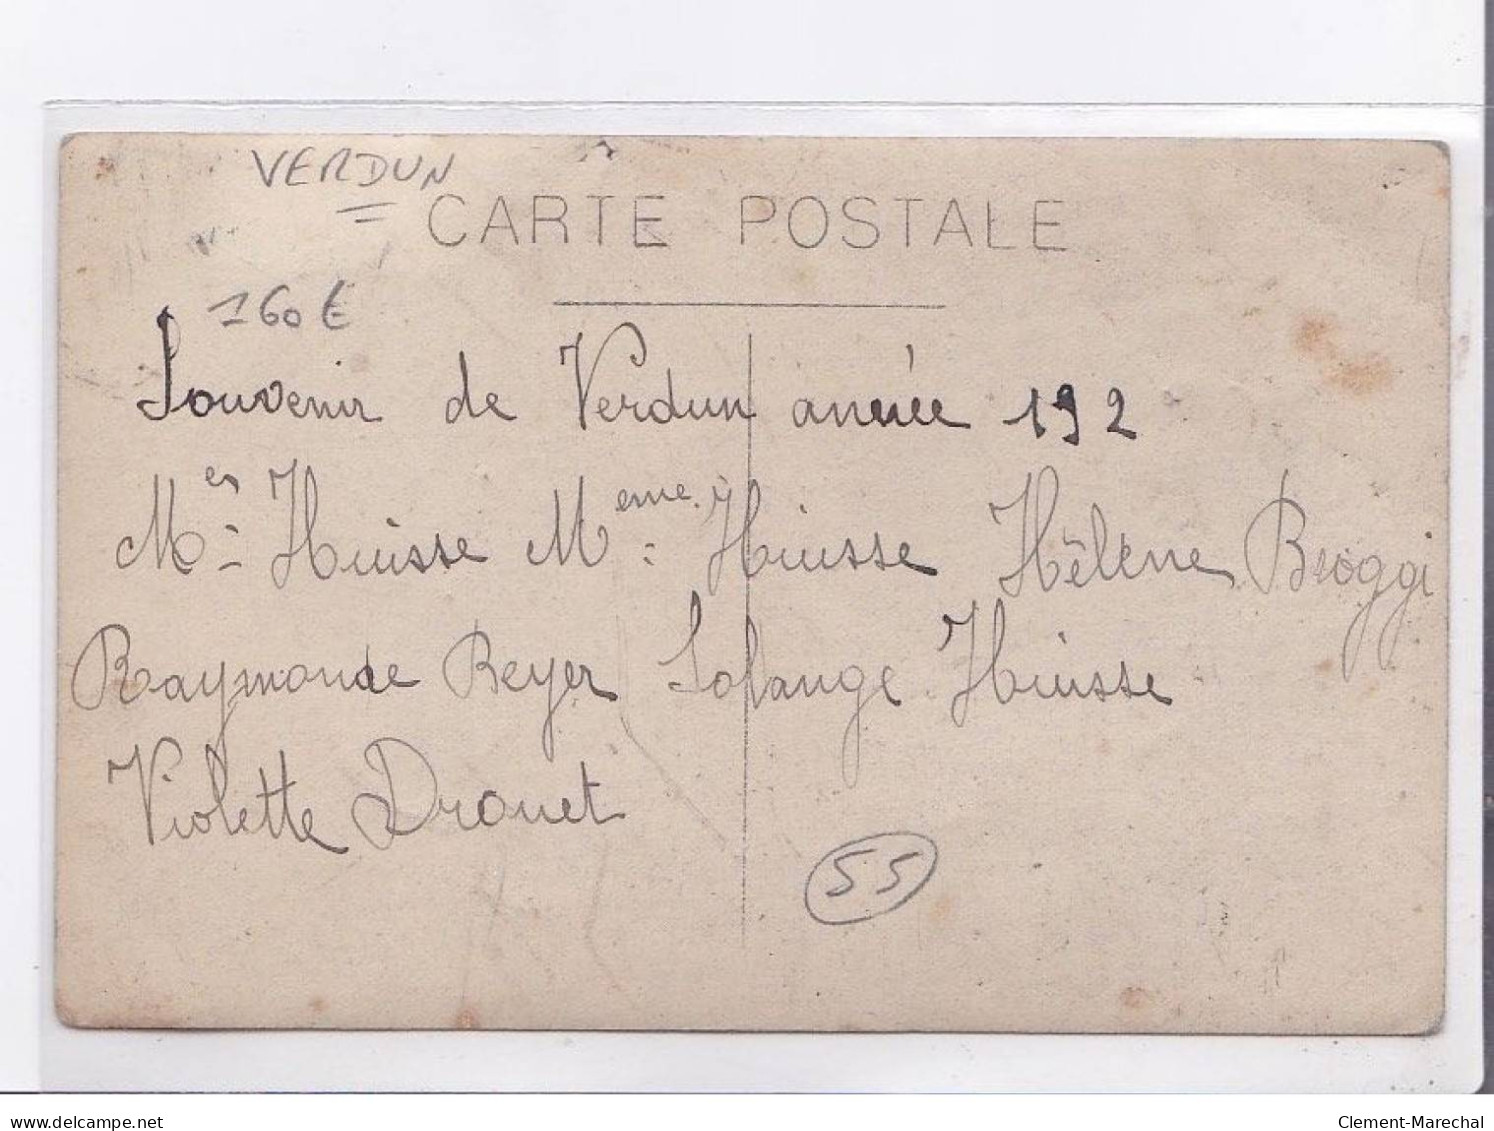 VERDUN
CARTE POSTALE
160 €
Souvenir de Verdun année 192
Mer Huisse Meme. Huisse Hélène Broggi
Raymonde Beyer Solange Huisse
Violette Drouet
55
delcampe.net
Clement-Marechal